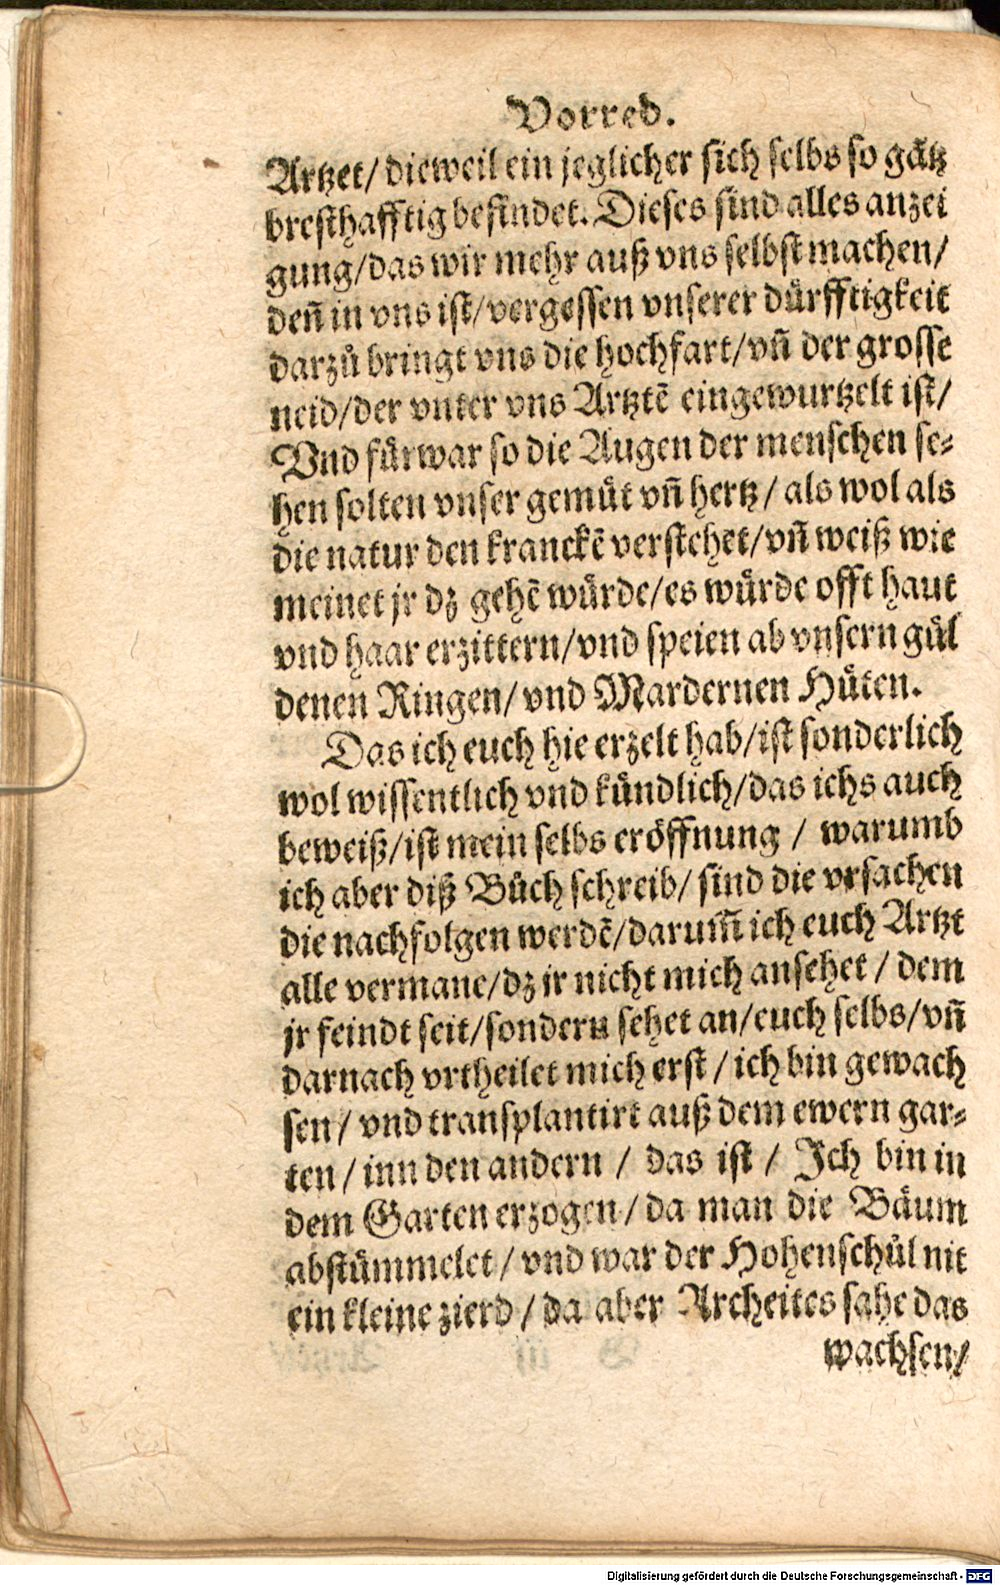 Vorred.
Artzet/ dieweil ein jeglicher sich selbs so gåtz
bresthafftig befindet. Dieses sind alles anzei
gung/das wir mehr auß vns selbst machen/
deñ in vns ist/vergessen vnserer dürfftigkeit
darzů bringt vns die hochfart/vñ der grosse
neid/der vnter vns Artztẽ eingewurtzelt ist/
Vnd fürwar so die Augen der menschen se-
hen solten vnser gemüt vñ hertz/ als wol als
die natur den kranckẽ verstehet/vñ weiß wie
meinet jr dz gehẽ würde/es würde offt haut
vnd haar erzittern/vnd speien ab vnsern gül
denen Ringen/ vnd Mardernen Hüten.
Das ich euch hie erzelt hab/ist sonderlich
wol wissentlich vnd kündlich/das ichs auch
beweiß/ist mein selbs eröffnung / warumb
ich aber diß Bůch schreib/ sind die vrsachen
die nachfolgen werdẽ/darum̃ ich euch Artzt
alle vermane/dz ir nicht mich ansehet / dem
jr feindt seit/sondern sehet an/euch selbs/vñ
darnach vrtheilet mich erst / ich bin gewach
sen/ vnd transplantirt auß dem ewern gar-
ten/ inn den andern / das ist / Ich bin in
dem Garten erzogen/ da man die Bäum
abstümmelet / vnd war der Hohenschůl nit
ein kleine zierd / da aber Archeites sahe das
wachsen/
Digitalisierung gefördert durch die Deutsche Forschungsgemeinschaft - DFG